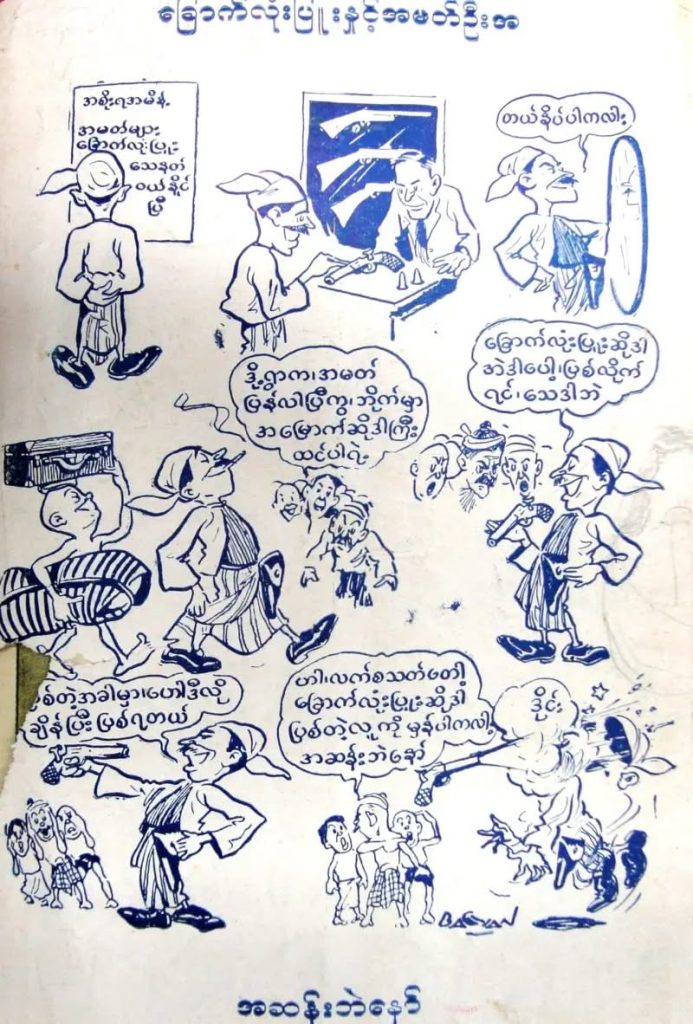 ခြောက်လုံးပြူးနှင့်အမတ်ဦးအ
အစိုးရအမိန့်
အမတ်များ
ခြောက်လုံးပြူး
သေနတ်
ဝယ်နိူင်
ပြီ
တယ်နိပ်ပါကလါး
ဒို့ရွာက၊အမတ်
ပြန်လါပြီကွ၊ဘိုက်မှာ
အမြောက်ဆိုဒါကြီး
ထင်ပါရဲ့
ခြောက်လုံးပြူးဆိုဒါ
အဲဒါပေါ့၊ပြစ်လိုက်
ရင်၊သေဒါဘဲ
ပြစ်တဲ့အခါမှာ၊ဟေါဒီလို
ချိန်ပြီးပြစ်ရတယ်
ဟါ၊လက်စသတ်တော့
ခြောက်လုံးပြူးဆိုဒါ
ပြစ်တဲ့လူကိုမှန်ပါကလါး
အဆန်းဘဲနော်
ဒိုင်း
အဆန်းဘဲနော်